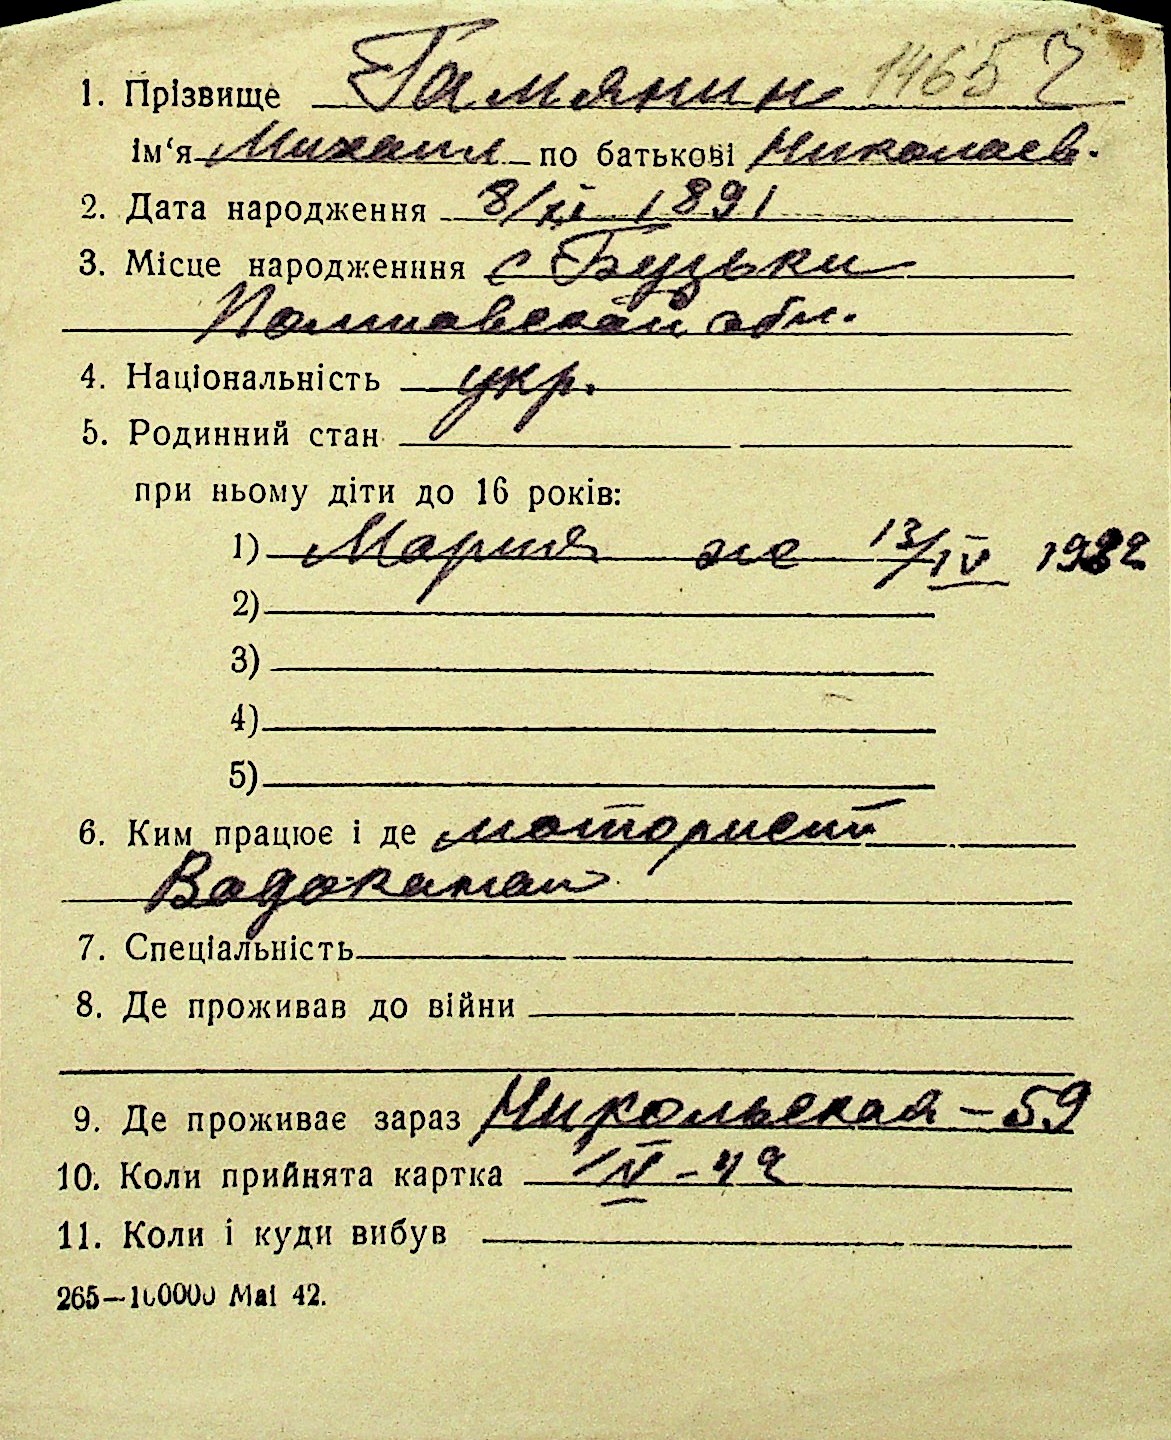 1. Прізвище Гамянин 1465
ім‘я Михаил по батькові Николаев.
2. Дата народження 8/XI 1891
3. Місце народженння с Бузьки
Полтавской обл.
4. Національність укр.
5. Родинний стан
при ньому діти до 16 років:
1) Мария же 13/IV 1932
2)
3)
4)
5)
6. Ким працює і де моторист
Водоканал
7. Спеціальність
8. Де проживав до війни
9. Де проживає зараз Никольская – 59
10. Коли прийнята картка IV – 42
11. Коли і куди вибув
265—100000 Маі 42.